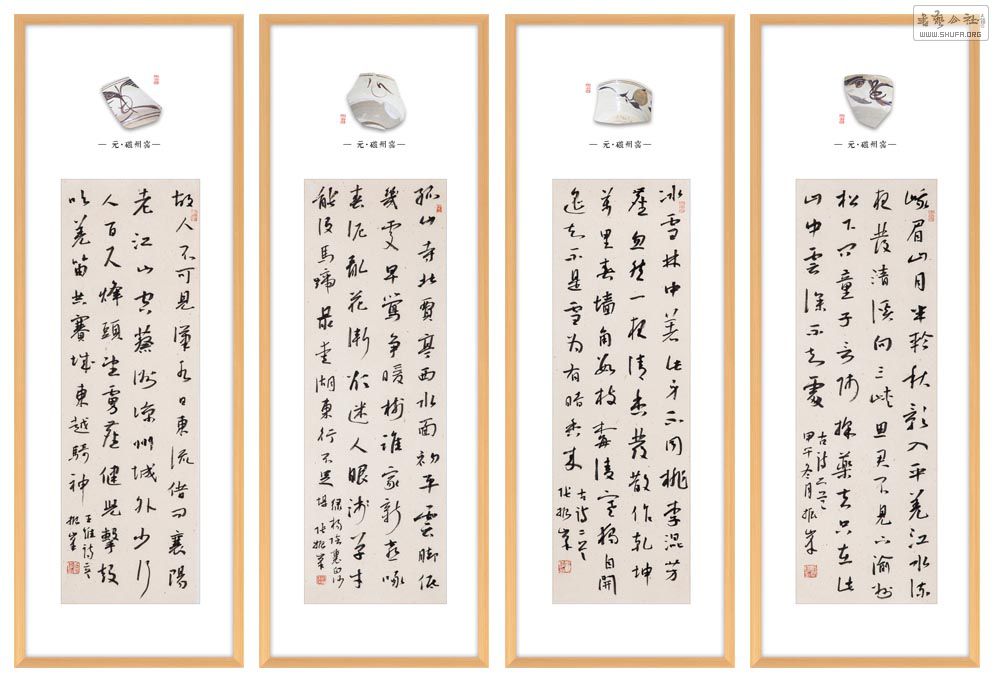 書藝公社
WWW.SHUFA.ORG
元·磁州窑
峨眉山月半輪秋影入平羌江水流
夜發清溪向三峽思君不見下渝州
松下问童子言师採藥去只在此
山中雲深不知處
古诗二首
甲午冬月振峯
元·磁州窑
冰雪林中著此身不同桃李混芳
塵忽然一夜清香發散作乾坤
萬里春墙角數枝梅凌寒獨自開
遥知不是雪为有暗香来
古诗二首
张振峯
元·磁州窑
孤山寺北賈亭西水面初平雲脚低
幾處早鶯争暖樹誰家新燕啄
春泥亂花漸欲迷人眼淺草才
能没馬蹄最愛湖東行不足
绿杨陰裏白沙
堤 张振峯
元·磁州窑
故人不可見漢水日東流借问襄陽
老江山空蔡洲凉州城外少行
人百尺烽頭望虜塵健兒擊鼓
吹羌笛共賽城東越騎神
王维诗二首
振峯